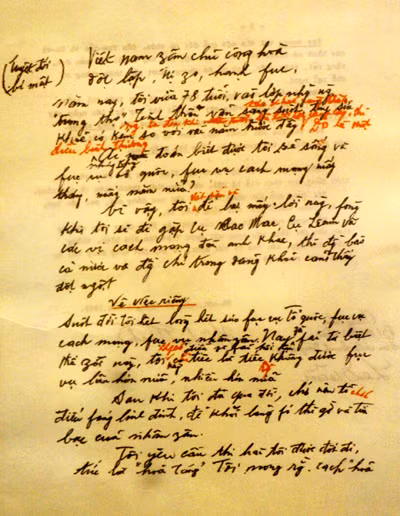 (Tuyệt đối
bí mật)
Việt nam zân chủ cộng hoà
độc lập, tự zo, hạnh fúc.
Năm nay, tôi vừa 78 tuổi, vào lớp những ng
"trung thọ". Tinh thần vẫn sáng suốt, tuy sức
khoẻ có kém so với vài năm trước đây
điều bình thường
đoán biết được tôi sẽ sống và
fục vụ tổ quốc, fục vụ cách mạng mấy
tháng, mấy năm nữa?
Vì vậy, tôi để lại mấy lời này, fòng
khi tôi sẽ đi gặp cụ Các Mác, Cụ Lênin và
các vị cách mạng đàn anh khác, thì đg bào
cả nước và đg chí trong đảng khỏi cảm thấy
đột ngột.
Về việc riêng
Suốt đời tôi hết lòng hết sức fục vụ Tổ quốc, fục vụ
cách mạng, fục vụ nhân zân. Nay fải từ biệt
thế zới này, tôi chỉ tiếc là tiếc không được fục
vụ lâu hơn nữa, nhiều hơn nữa.
Sau khi tôi đã qua đời, chớ nên tổ chức
điếu fúng linh đình, để khỏi lãng fí thì zờ và tiền
bạc của nhân zân.
Tôi yêu cầu thi hài tôi được đốt đi,
tức là "hoả táng". Tôi mong rg. cách "hoả